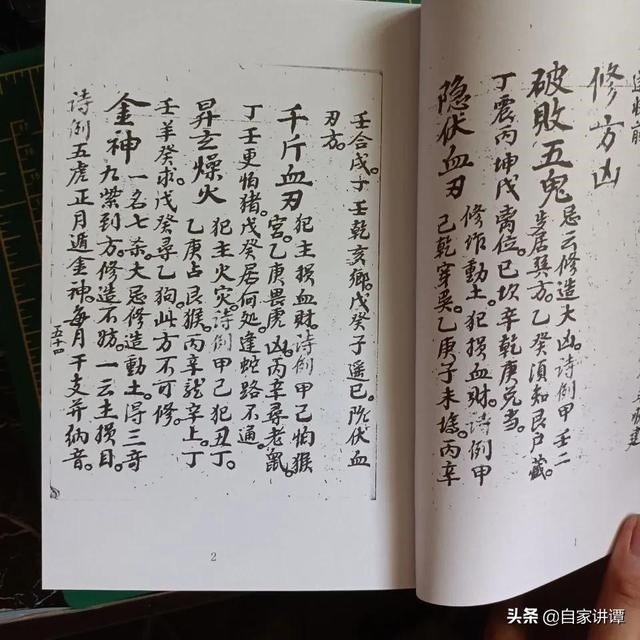 修方凶
破敗五鬼
忌云修造大凶。诗例甲壬二
居巽方。乙癸須知艮户藏。
丁震丙坤戊離位。已坎辛乾庚兑当。
隐伏血刃
修作動土犯損血財。诗例甲
己乾穿巽。乙庚子未。丙辛
1
壬合戌。丁壬乾亥鄉。戊癸子遥巳。伏血
刃方。
千斤血刃
犯主損血財。诗例甲己怕猴
宫。乙庚畏虎凶。丙辛尋老鼠。
丁壬更怕猪。戊癸居何処。逢蛇路不通。
昇玄燥火
犯主火灾。诗例甲己犯丑丁。
乙庚占艮猴。丙辛龍辛上。丁
壬羊癸求。戊癸尋乙狗。此方不可修。
金神
一名七杀。大忌修造動土。得三奇
九紫到方。修造不妨。一云主損目。
诗例五虎正月遁金神。每月干支并纳音。
五十四
2
头条 @自家讲谭